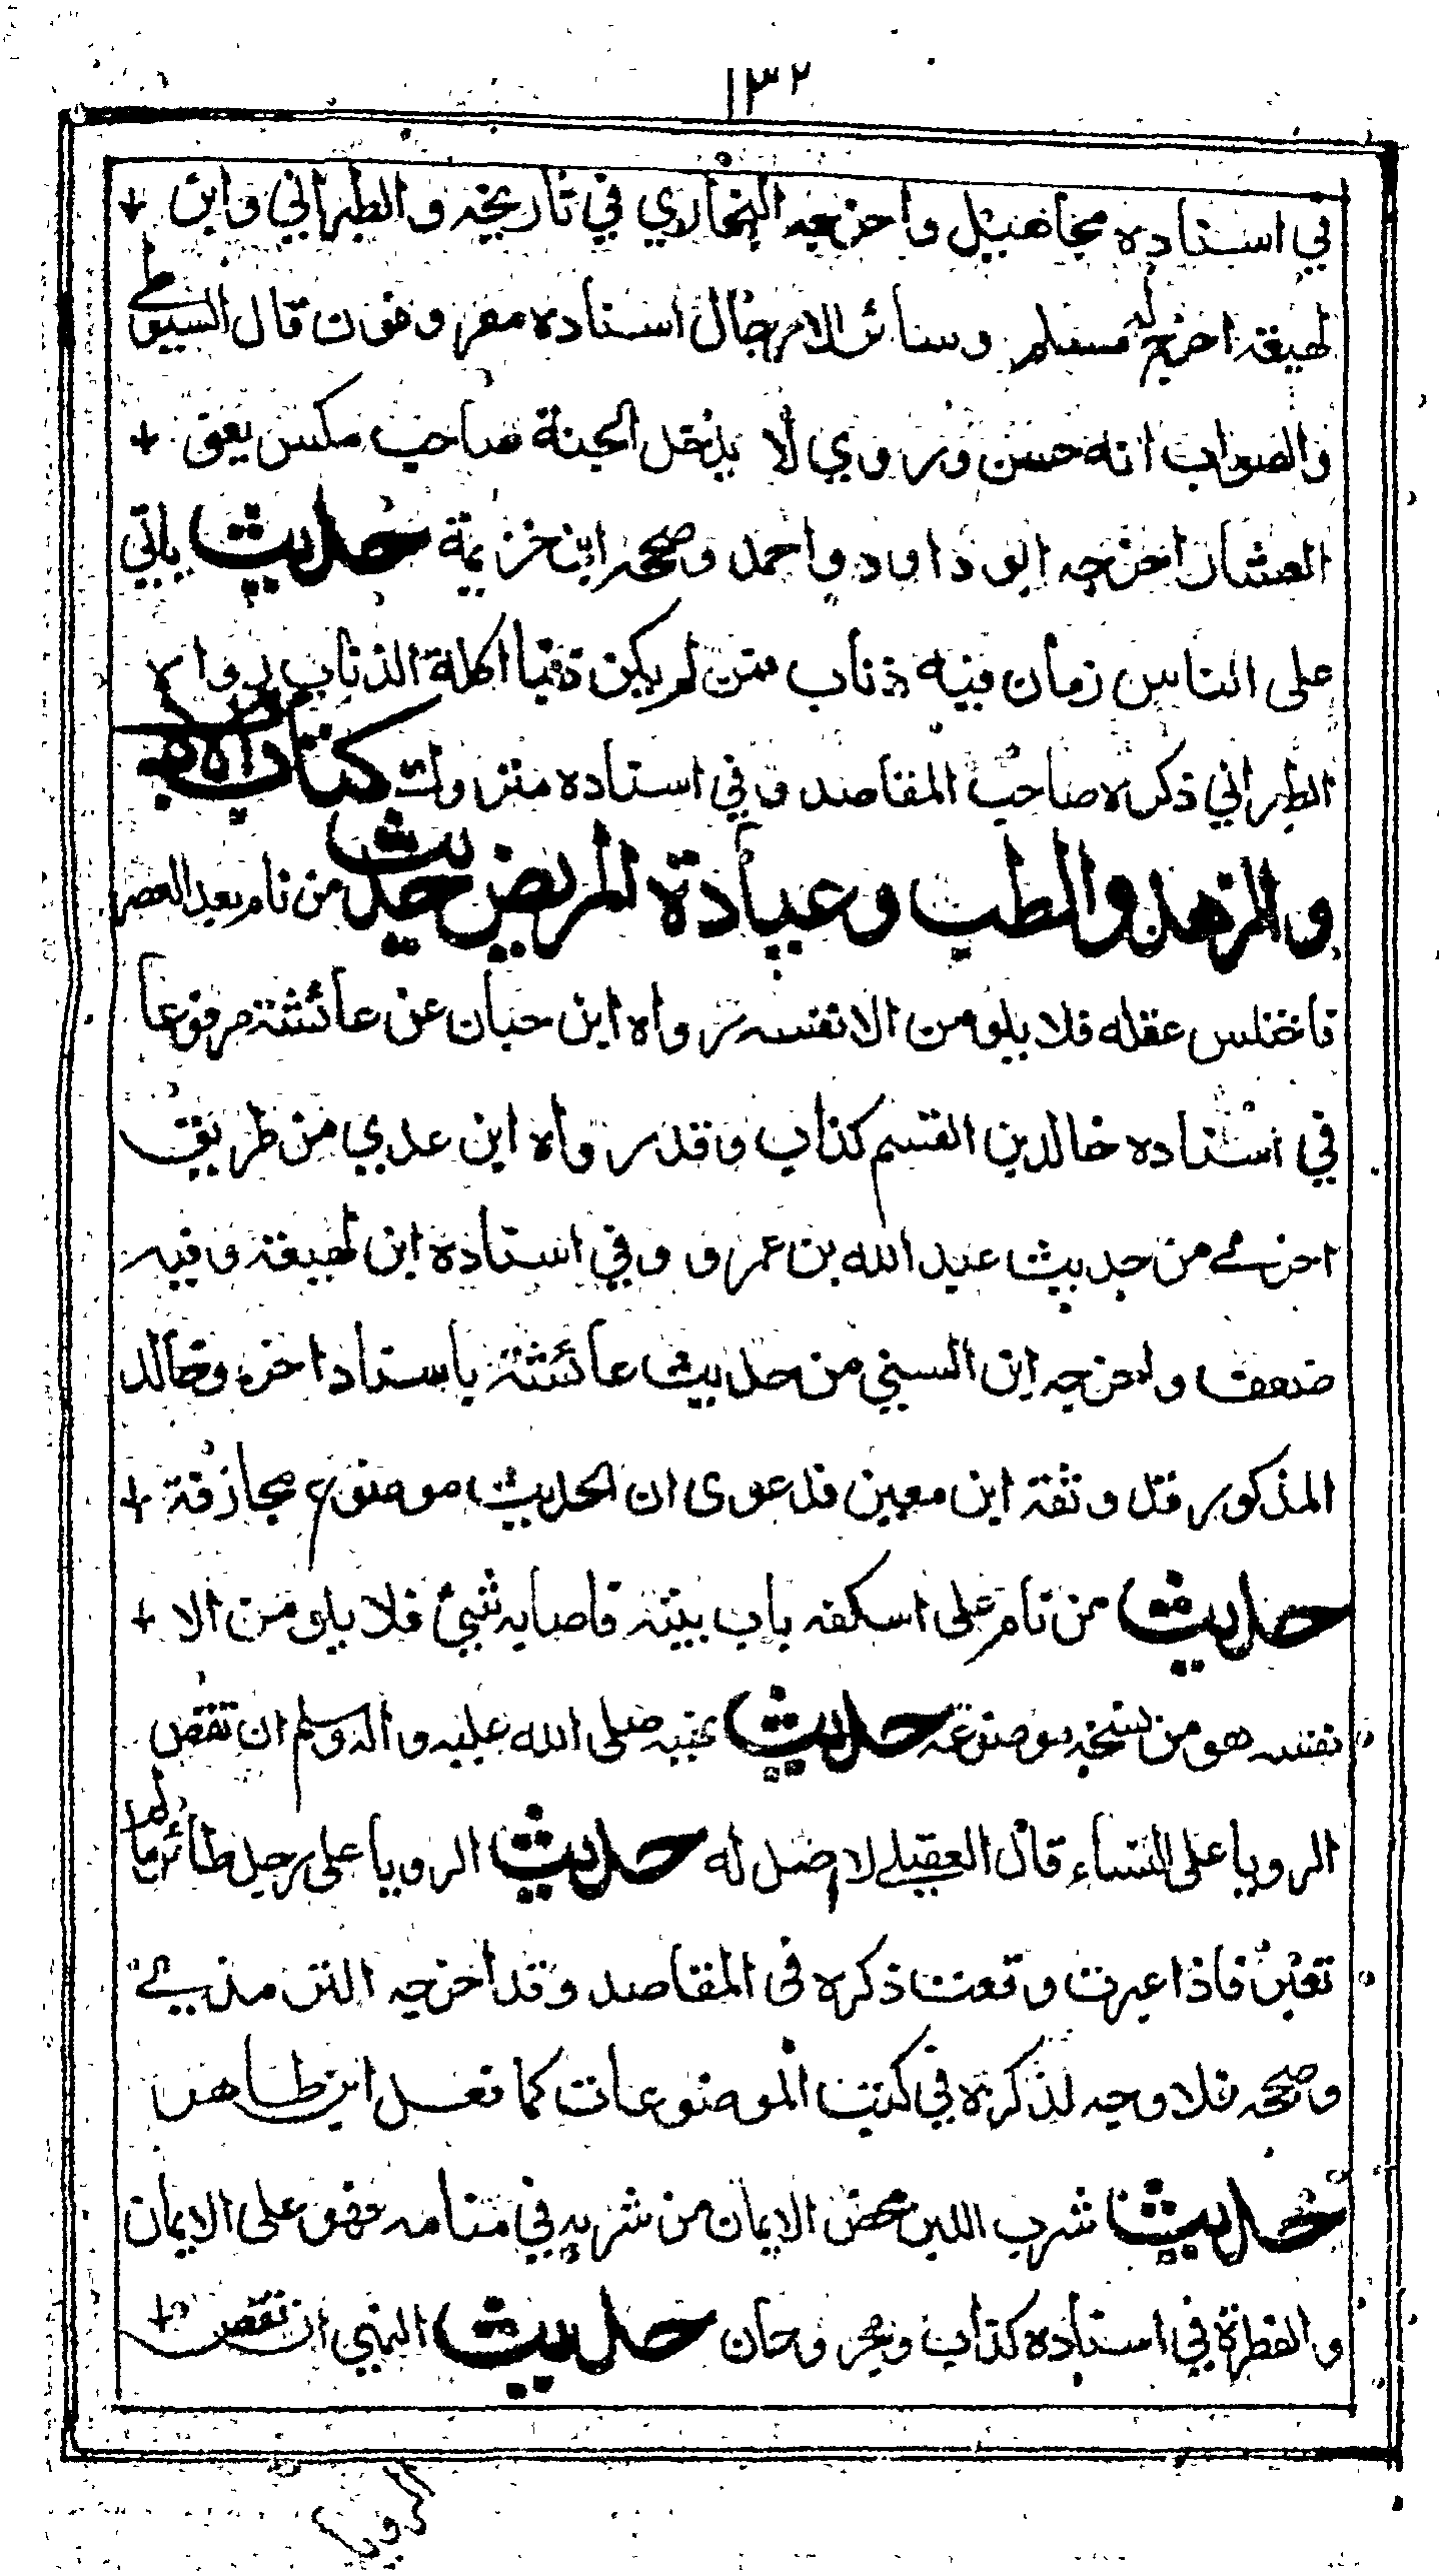 ١٣٢
في اسناده مجاهيل واخرجه البخاري في تاريخه والطبراني وابن
لهيعة اخرج له مسلم وسائر الامر جال اسناده معروفون قال السيوطي
والصواب انه حسن وروي لا يدخل الجنة صاحب مكس يعني
العشار اخرجه ابو داود واحمد وصححه ابن خزيمة حديث ياتي
على الناس زمان فيه ذئاب فمن لم يكن ذئبا اكلته الذئاب رواه
الطبراني ذكره صاحب المقاصد وفي اسناده متروك كتاب الادب
والزهد والطب وعيادة المريض حديث من نام بعد العصر
فاختلس عقله فلا يلومن الا نفسه رواه ابن حبان عن عائشة مرفوعا
في اسناده خالد بن القسم كذاب وقد رواه ابن عدي من طريق
اخرى من حديث عبد الله بن عمرو وفي اسناده ابن لهيعة وفيه
ضعف واخرجه ابن السني من حديث عائشة باسناد اخر وخالد
المذكور قد وثقه ابن معين فدعوى ان الحديث موضوع مجازفة
حديث من نام على اسكفة باب بيته فاصابه شيئ فلا يلومن الا
نفسه هو من نسخة موضوعة حديث نهيه صلى الله عليه واله وسلم ان تقص
الرويا على النساء قال العقيلي لا اصل له حديث الرويا على رجل طائر ما لم
تعبر فاذا عبرت وقعت ذكره فى المقاصد وقد اخرجه الترمذي
وصححه فلا وجه لذكره في كتب الموضوعات كما فعل ابن طاهر
حديث شرب اللبن محض الايمان من شربه في منامه فهو على الايمان
والفطرة في اسناده كذاب ومجروحان حديث النهي ان تقص
الرويا